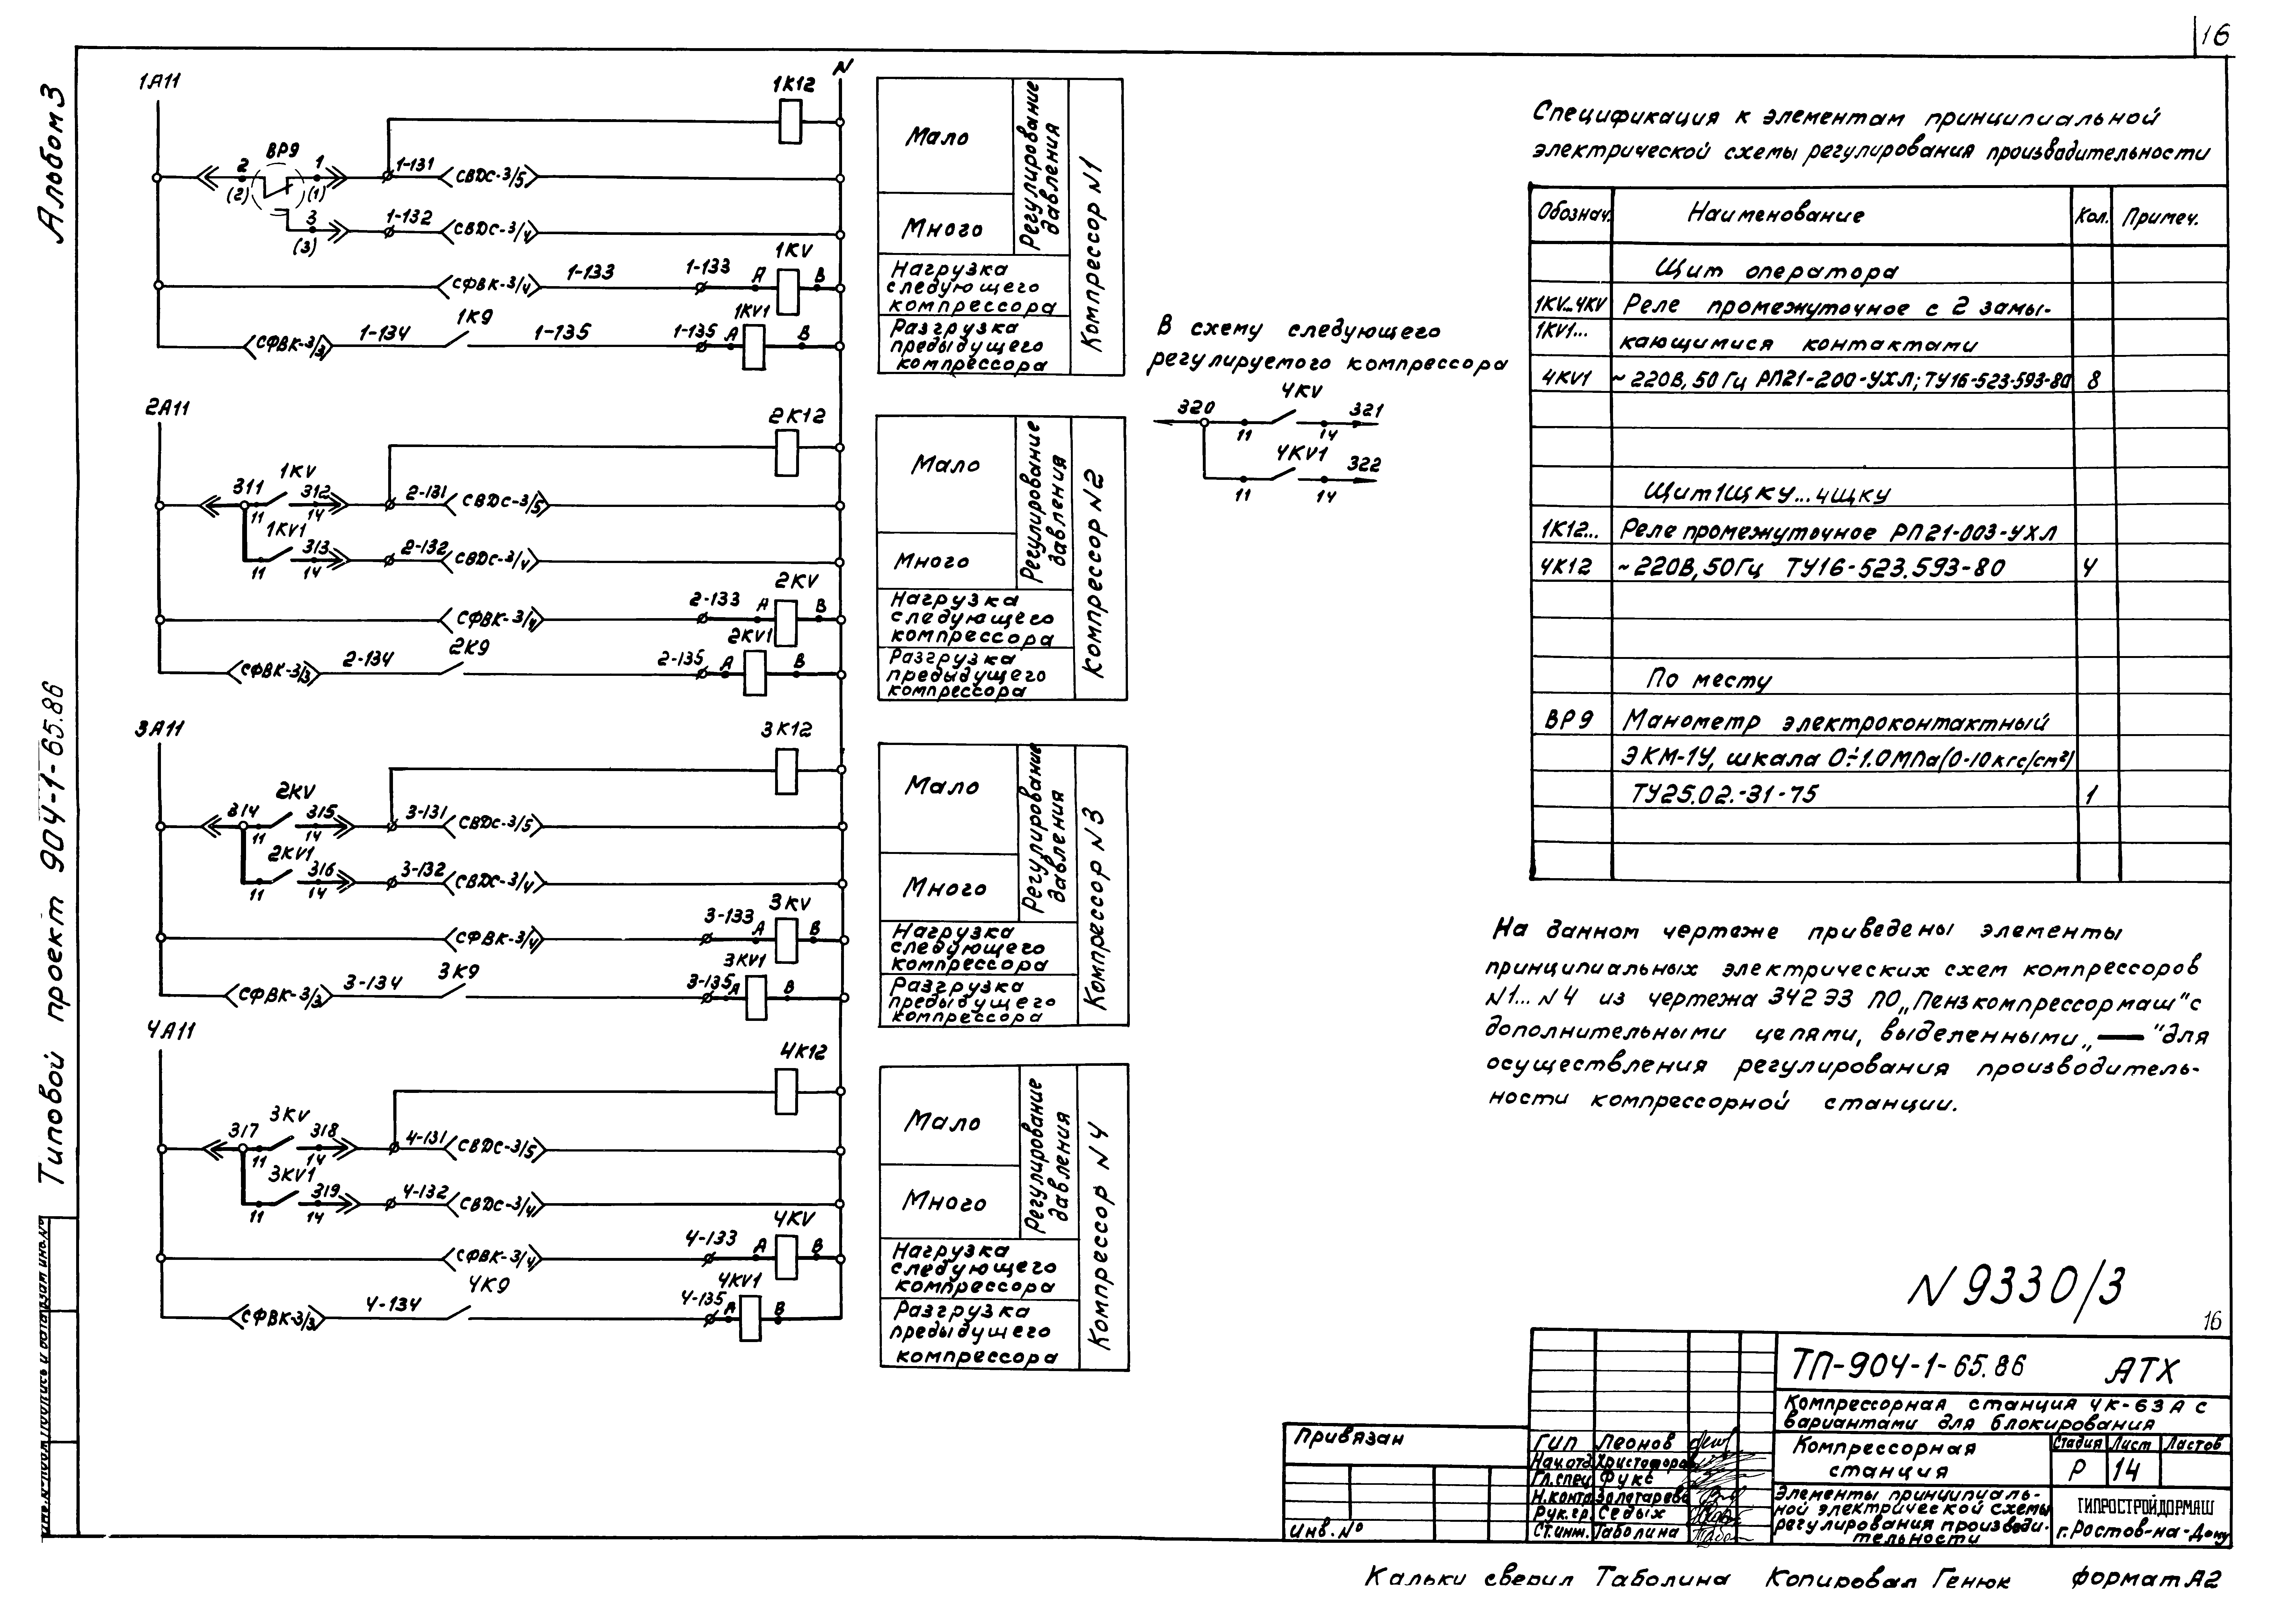 16
Альбом 3
Типовой проект 904-1-65.86
1А11
N
1К12
ВР9
2
1
(2)
(1)
1-131
СВДС-3/5
3
(3)
1-132
СВДС-3/4
1KV
СФВК-3/4
1-133
1-133
А
В
1KV1
СФВК-3/3
1-134
1К9
1-135
1-135
А
В
Мало
Много
Регулирование
давления
Нагрузка
следующего
компрессора
Разгрузка
предыдущего
компрессора
Компрессор N1
2А11
2К12
1KV
311
312
11
14
2-131
СВДС-3/5
1KV1
313
11
14
2-132
СВДС-3/4
2KV
СФВК-3/4
2-133
А
В
2KV1
СФВК-3/3
2-134
2К9
2-135
А
В
Мало
Много
Регулирование
давления
Нагрузка
следующего
компрессора
Разгрузка
предыдущего
компрессора
Компрессор N2
3А11
3К12
2KV
314
315
11
14
3-131
СВДС-3/5
2KV1
316
11
14
3-132
СВДС-3/4
3KV
СФВК-3/4
3-133
А
В
3KV1
СФВК-3/3
3-134
3К9
3-135
А
В
Мало
Много
Регулирование
давления
Нагрузка
следующего
компрессора
Разгрузка
предыдущего
компрессора
Компрессор N3
4А11
4К12
3KV
317
318
11
14
4-131
СВДС-3/5
3KV1
319
11
14
4-132
СВДС-3/4
4KV
СФВК-3/4
4-133
А
В
4KV1
СФВК-3/3
4-134
4К9
4-135
А
В
Мало
Много
Регулирование
давления
Нагрузка
следующего
компрессора
Разгрузка
предыдущего
компрессора
Компрессор N4
В схему следующего
регулируемого компрессора
4KV
320
321
11
14
4KV1
322
11
14
Спецификация к элементам принципиальной
электрической схемы регулирования производительности
Обознач. Наименование Кол. Примеч.
Щит оператора
1KV...4KV Реле промежуточное с 2 замы-
1KV1... кающимися контактами
4KV1 ~220В, 50Гц РП21-200-УХЛ; ТУ16-523-593-80 8
Щит 1ЩКУ...4ЩКУ
1К12... Реле промежуточное РП21-003-УХЛ
4К12 ~220В, 50Гц ТУ16-523.593-80 4
По месту
ВР9 Манометр электроконтактный
ЭКМ-1У, шкала 0÷1.0МПа(0-10кгс/см²)
ТУ25.02.-31-75 1
На данном чертеже приведены элементы
принципиальных электрических схем компрессоров
N1...N4 из чертежа 342 ЭЗ ПО „Пензкомпрессормаш" с
дополнительными цепями, выделенными „—" для
осуществления регулирования производитель-
ности компрессорной станции.
N 9330/3
16
ТП-904-1-65.86 АТХ
Компрессорная станция 4К-63А с
вариантами для блокирования
Компрессорная
станция
Стадия Лист Листов
Р 14
Элементы принципиаль-
ной электрической схемы
регулирования производи-
тельности
ГИПРОСТРОЙДОРМАШ
г. Ростов-на-Дону
Привязан
Инв. №
ГИП Леонов
Нач.отд. Христофоров
Гл.спец. Фукс
Н.контр. Золотарева
Рук.гр. Седых
Ст.инж. Таболина
Инв.№подл. Подпись и дата Взам инв.№
Кальки сверил Таболина Копировал Генюк формат А2